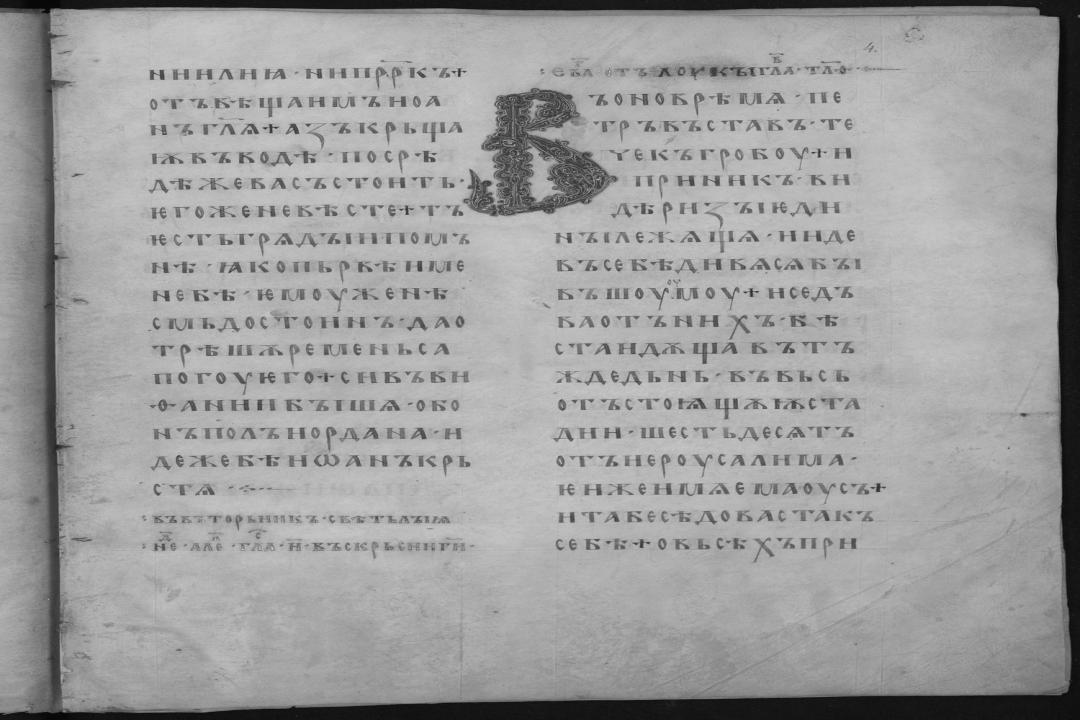 ни илиꙗ · ни прⷪ҇ркъ ⁘
отъвѣща имъ иоа
нъ гл҃ѧ ⁘ азъ крьща
ѭ въ водѣ · посрѣ
дѣ же васъ стоить ·
ѥгоже не вѣсте ⁘ тъ
ѥсть грѧдыи по мъ
нѣ · ꙗко пьрвѣи ме
не бѣ · ѥмоуже нѣ
смь достоинъ · да о
трѣшѫ ремень са
погоу ѥго ⁘ си въ ви
ѳании быша · об о
нъ полъ иордана · и
деже бѣ иѡанъ крь
стѧ
въ въторьникъ свѣтьлыꙗ
не · але · гла · и҃ · въскрьсни г҃и ·
ев҃а отъ лоукы гла · тл҃о ·
Въ оно врѣмѧ · пе
тръ въставъ · те
че къ гробоу ⁘ и
приникъ · ви
дѣ ризы ѥди
ны лежѧщѧ · и иде
въ себѣ дивѧсѧ бы
въшоуоумоу ⁘ и се дъ
ва отъ нихъ · бѣ
ста идѫща въ тъ
жде дьнь · въ вьсь
отъстоѩщѫѭ ста
дии · шесть десѧтъ
отъ иероусалима ·
ѥи же имѧ емаоусъ ⁘
и та бесѣдоваста къ
себѣ ⁘ о вьсѣхъ при